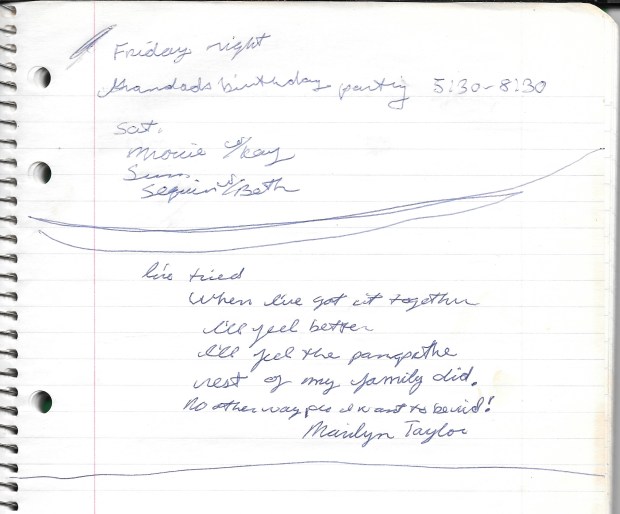 Friday night
Grandads birthday party 5:30-8:30
Sat.
Movie w/Kay
Sun.
Sequin w/Beth
I've tried
When I've got it together
I'll feel better
I'll feel the
rest of my family did.
No other way I want to be
Marilyn Taylor